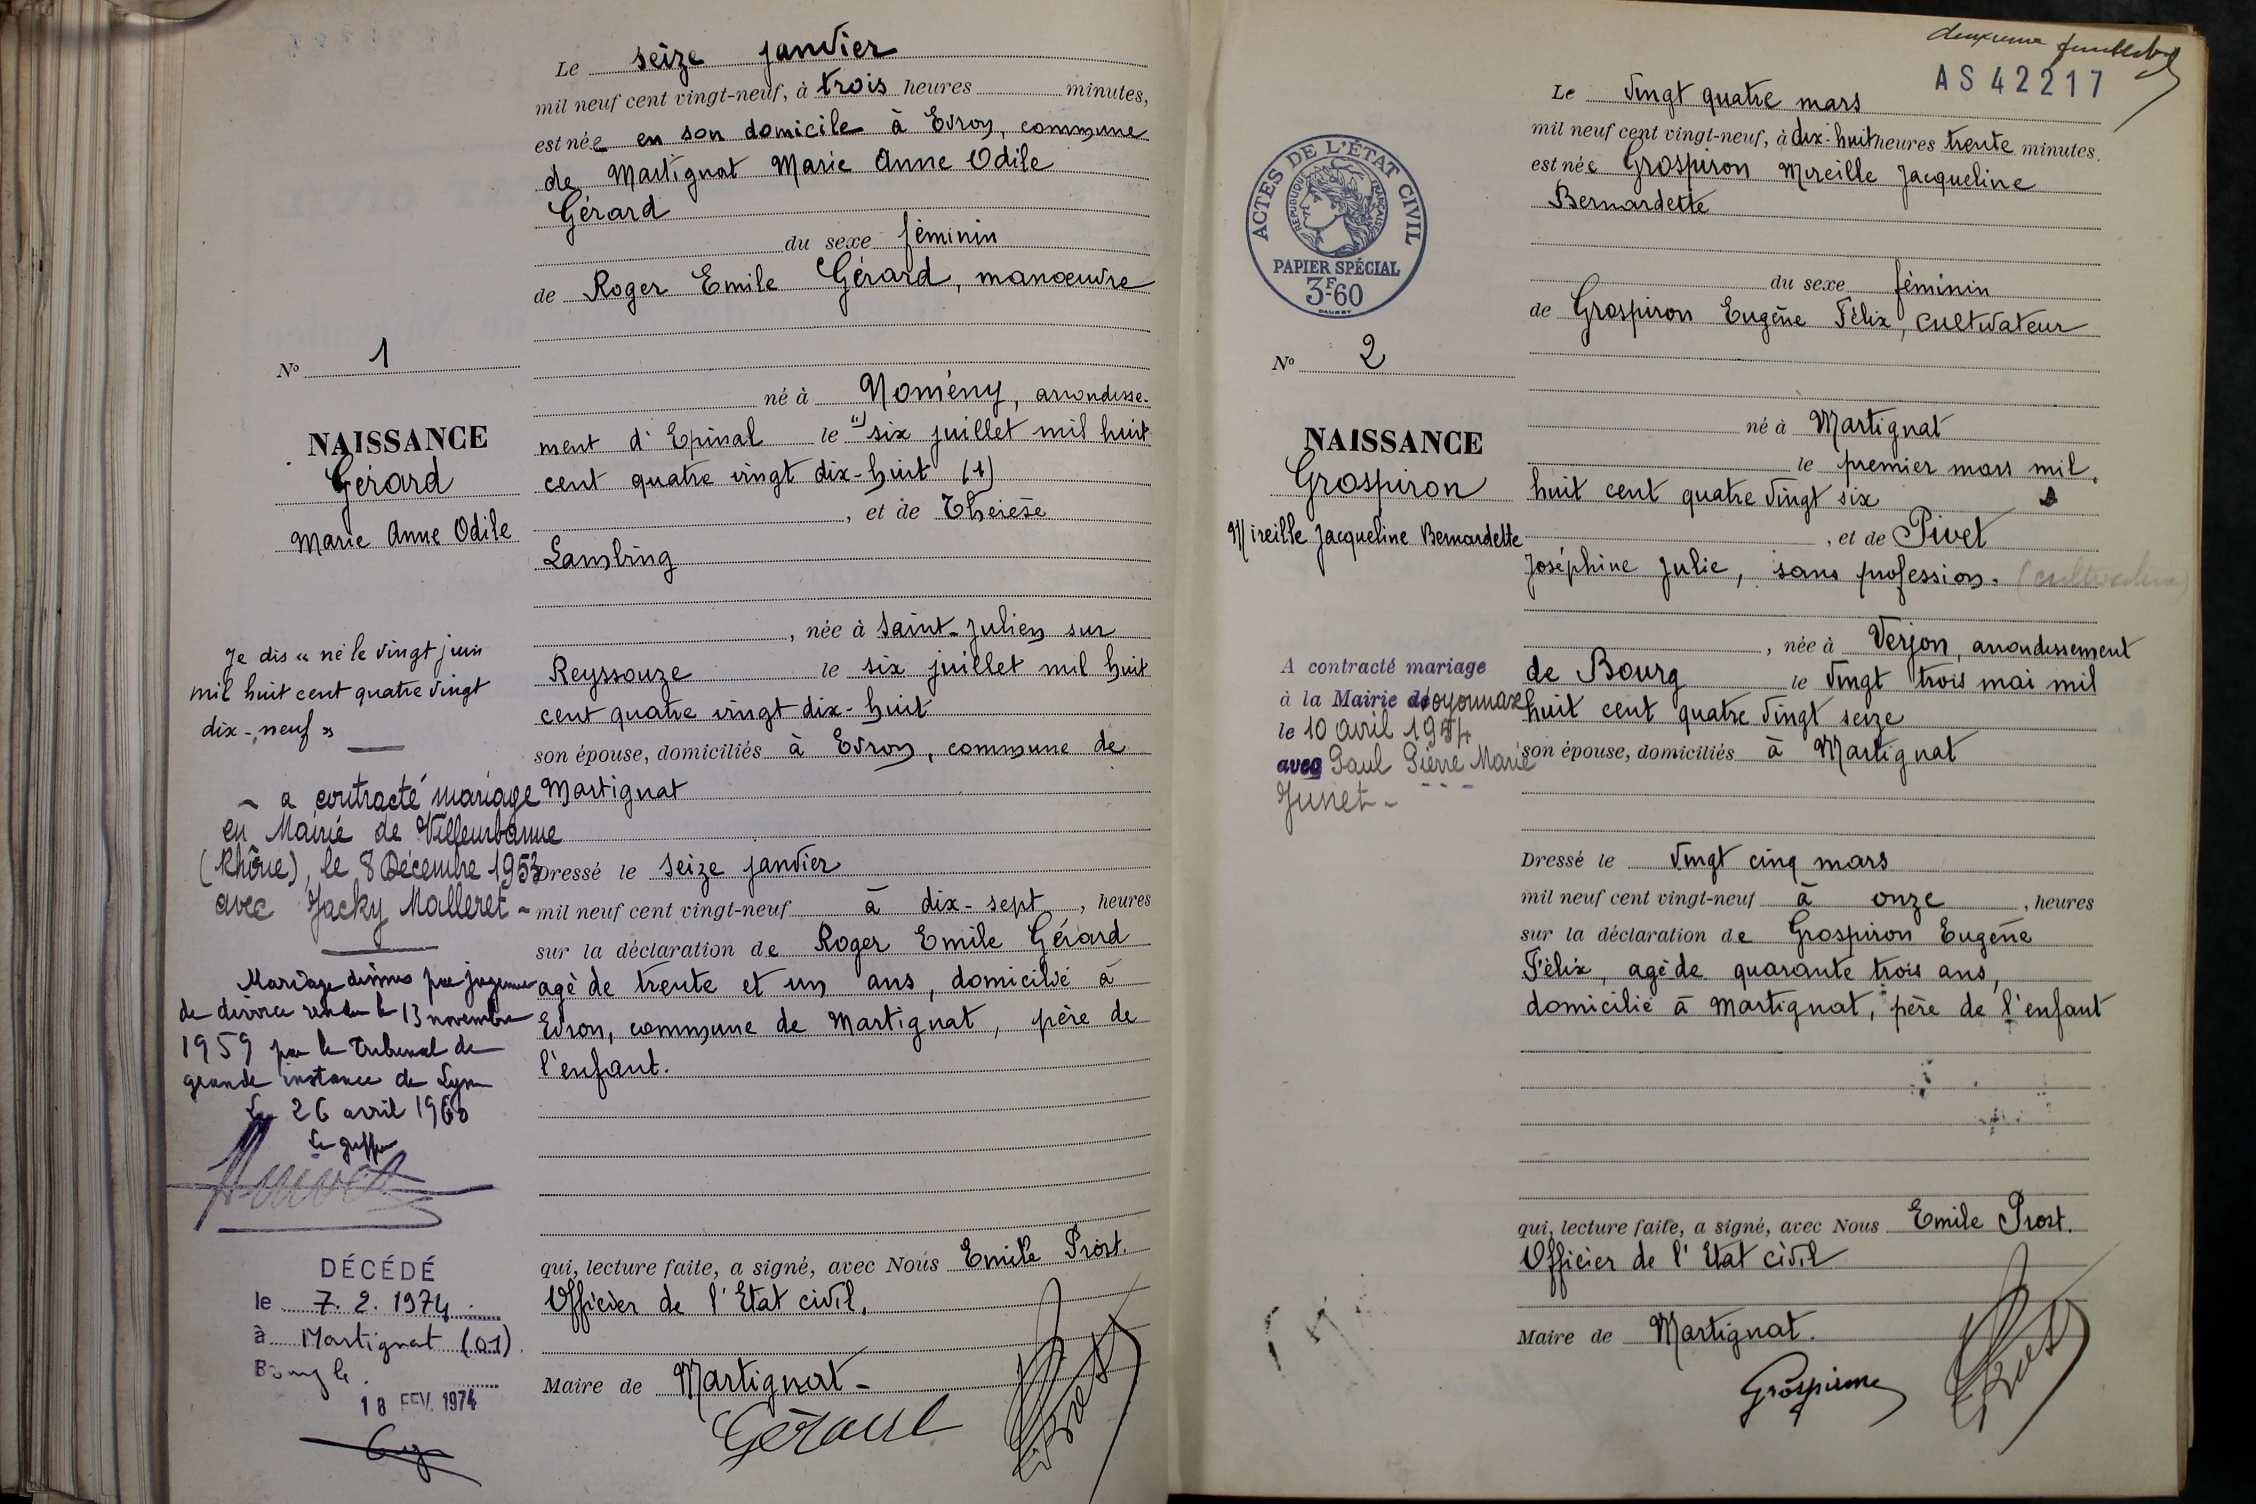 Le seize janvier
mil neuf cent vingt-neuf, à trois heures minutes,
est née en son domicile à Evron, commune
de Martignat Marie Anne Odile
Gérard
du sexe féminin
de Roger Emile Gérard, manœuvre
N° 1
né à Nomény, arrondisse-
ment d'Epinal le (1) six juillet mil huit
cent quatre vingt dix-huit (1)
, et de Thérèse
Lambring
, née à Saint-Julien sur
Reyssouze le six juillet mil huit
cent quatre vingt dix-huit
son épouse, domiciliés à Evron, commune de
Martignat
NAISSANCE
Gérard
Marie Anne Odile
Je dis « né le vingt juin
mil huit cent quatre vingt
dix-neuf »
a contracté mariage
en Mairie de Villeurbanne
(Rhône), le 8 Décembre 1953
avec Jacky Malleret -
Mariage dissous par jugement
de divorce rendu le 13 novembre
1959 par le Tribunal de
grande instance de Lyon
Le 26 avril 1960
Le greffier
DÉCÉDÉ
le 7. 2. 1974
à Martignat (01)
Bourg le
18 FEV. 1974
Dressé le seize janvier
mil neuf cent vingt-neuf à dix-sept, heures
sur la déclaration de Roger Emile Gérard
agé de trente et un ans, domicilié à
Evron, commune de Martignat, père de
l'enfant.
qui, lecture faite, a signé, avec Nous Emile Prost.
Officier de l'Etat civil.
Maire de Martignat -
Gérard
deuxième
AS 42217
Le vingt quatre mars
mil neuf cent vingt-neuf, à dix-huit heures trente minutes.
est née Grospiron Mireille Jacqueline
Bernardette
du sexe féminin
de Grospiron Eugène Félix, cultivateur
ACTES DE L'ÉTAT CIVIL
RÉPUBLIQUE FRANÇAISE
PAPIER SPÉCIAL
3F-60
N° 2
NAISSANCE
Grospiron
Mireille Jacqueline Bernardette
A contracté mariage
à la Mairie d'oyonnax
le 10 avril 1954
avec Paul Pierre Marie
Junet -
né à Martignat
le premier mars mil
huit cent quatre vingt six
, et de Pivet
Joséphine Julie, sans profession.
, née à Verjon, arrondissement
de Bourg le vingt trois mai mil
huit cent quatre vingt seize
son épouse, domiciliés à Martignat
Dressé le vingt cinq mars
mil neuf cent vingt-neuf à onze, heures
sur la déclaration de Grospiron Eugène
Félix, agé de quarante trois ans,
domicilié à Martignat, père de l'enfant
qui, lecture faite, a signé, avec Nous Emile Prost.
Officier de l'Etat civil
Maire de Martignat.